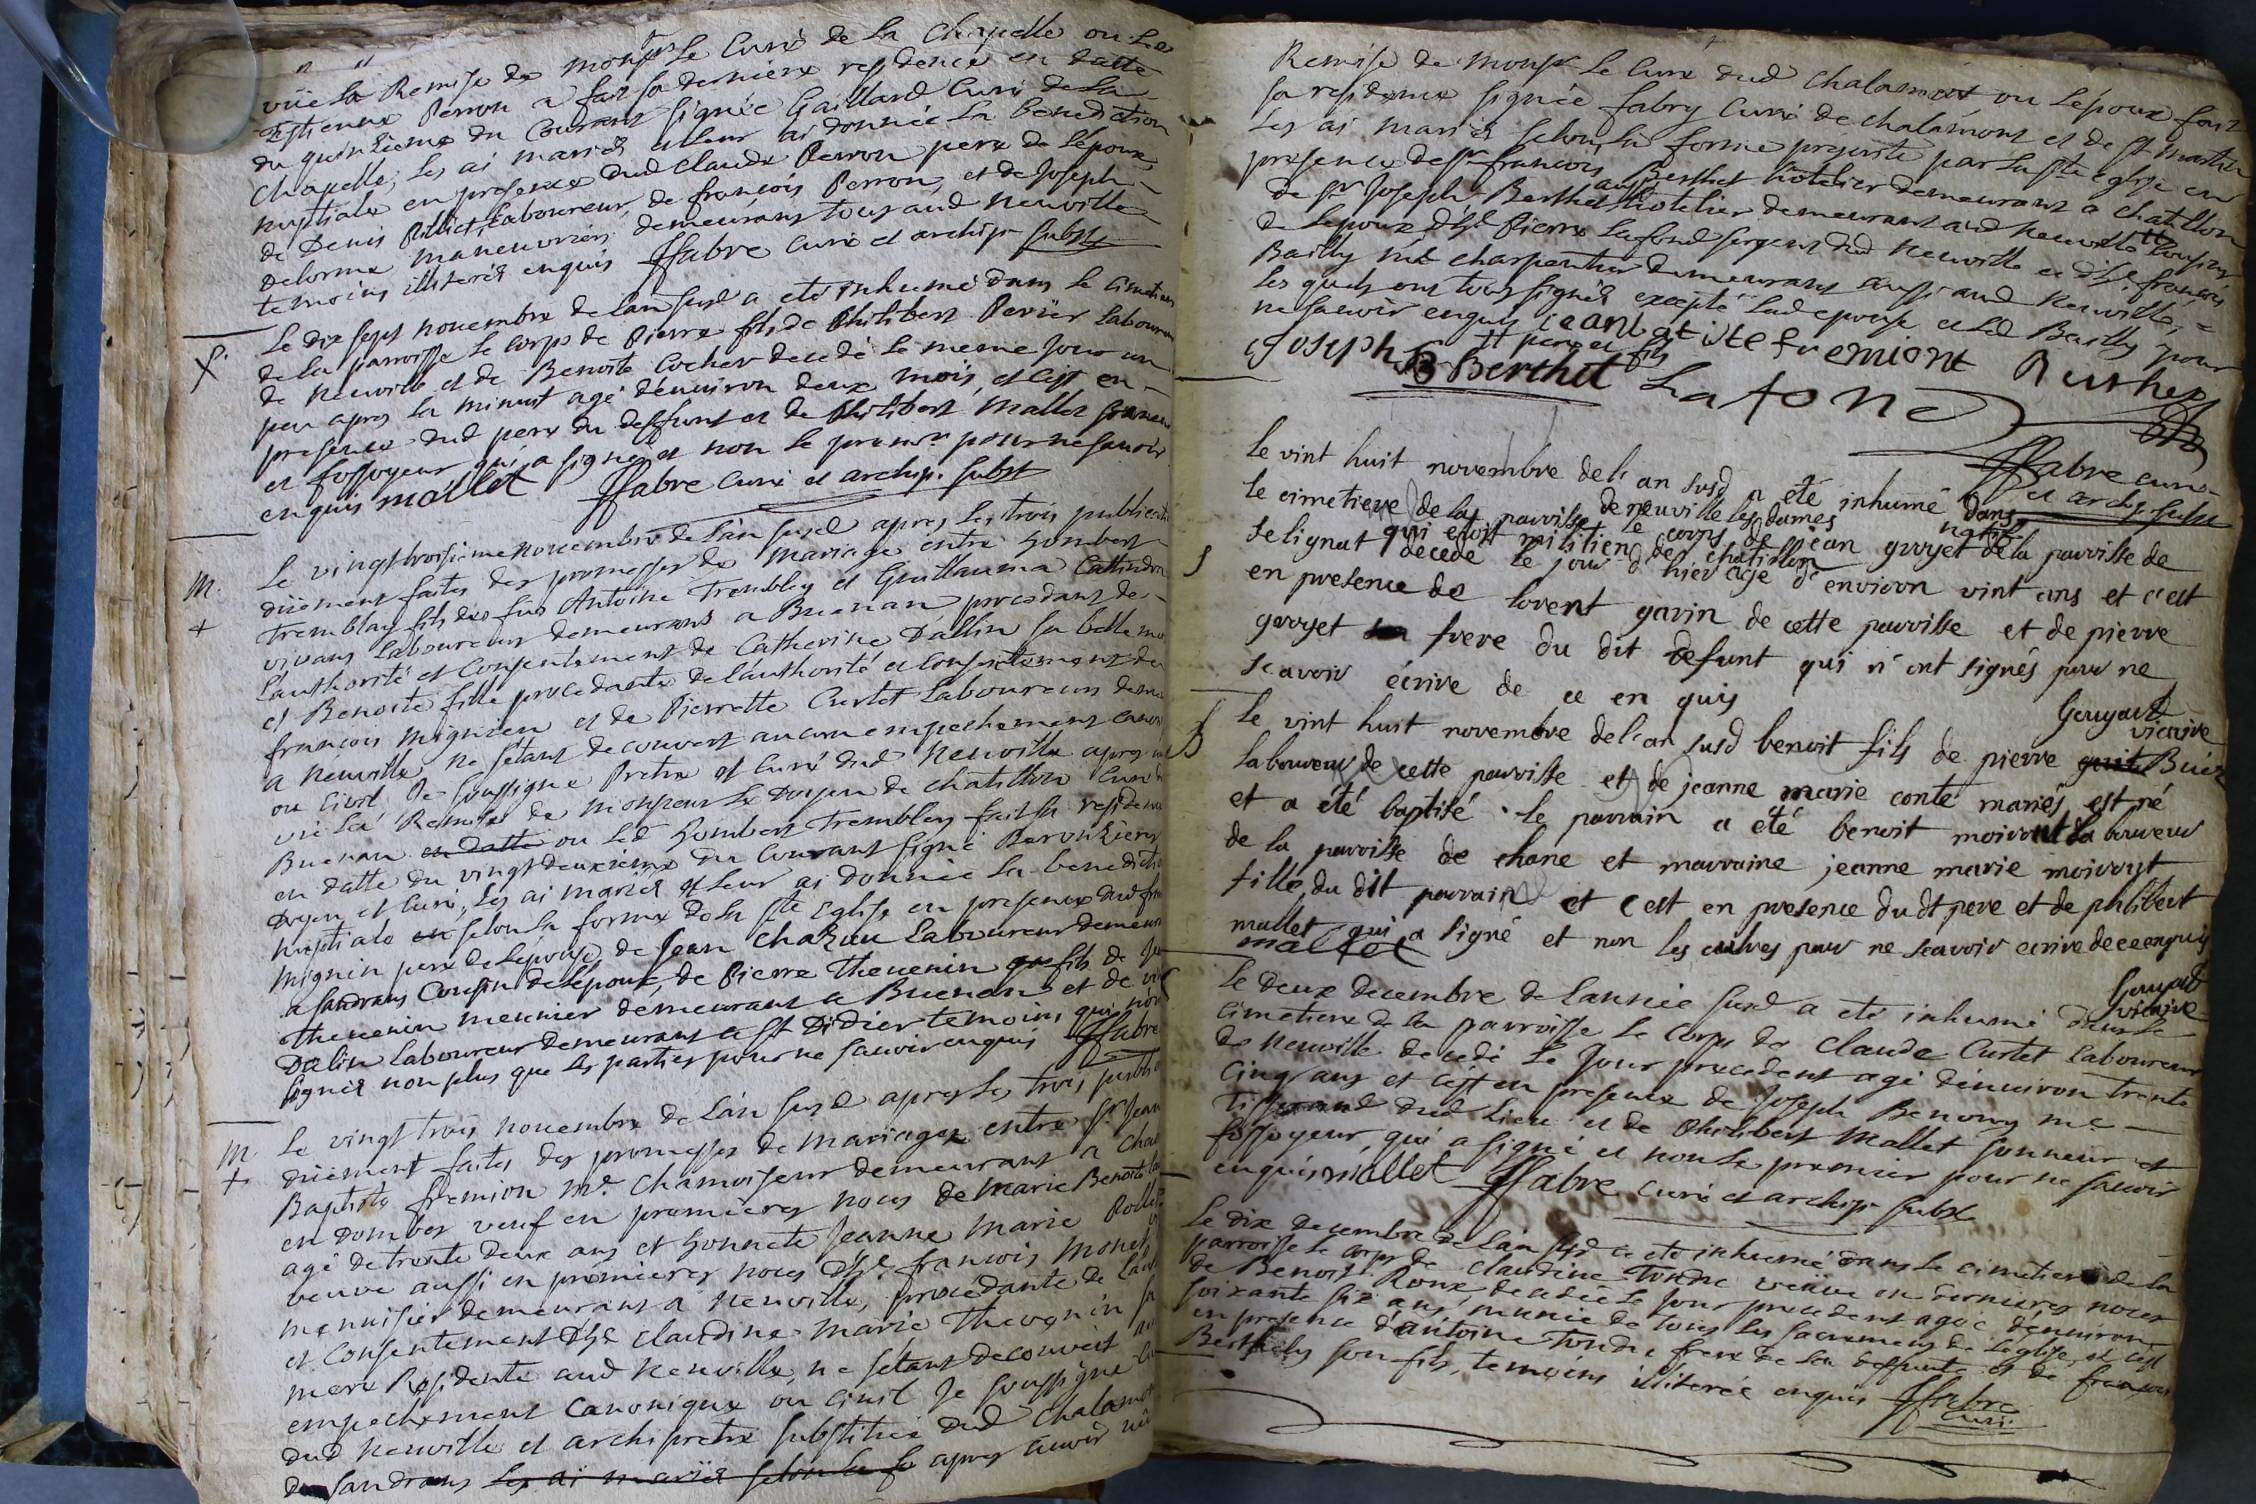 vüe la Remise de Monsr le Curé de la Chapelle ou led
Estienne Perron a fait sa derniere residence en datte
du quinzieme du Courant signée Gaillard Curé de la
Chapelle; les ai mariés et leur ai donnée la benediction
nuptiale en presence dud Claude Perron pere de l'epoux
de Denis laboureur, de françois Perron, et de Joseph
Delorme maneuvrier demeurans tous aud Neuville
temoins illiterés enquis ffabre Curé et archip. subst
Le dix sept novembre de l'an susd a eté inhumé dans le cimetiere
de la parroisse le corps de Pierre fils de Philibert Perrier laboureur
de Neuville et de Benoite Cochet decedé le meme jour un
peu apres la minuit agé d'environ deux mois, et c'est en
presence dud pere du deffunt et de Philibert Mallet sonneur
et fossoyeur qui a signé et non le premier pour ne savoir
enquis mallet ffabre Curé et archip. subst
m. Le vingt troisieme novembre de l'an susd apres les trois publications
düement faites des promesses de Mariage entre humbert
Tremblay fils de feu Antoine Tremblay et Guillauma Cathindon
vivans laboureurs demeurans a Buenan procedant de
l'authorité et Consentement de Catherine Dallin sa belle mere
et Benoite fille procedante de l'authorité et Consentement de
françois Mignien et de Pierrette Curtet laboureurs demeu
a Neuville, ne s'etant decouvert aucun empechement canoni
ou Civil Je soussigné Pretre et Curé dud Neuville apres avoir
vü la Remise de Monsieur le Doyen de chatillon Curé de
Buenan en datte ou led humbert Tremblay fait sa residence
en datte du vingt deuxieme du Courant signé
Doyen et Curé, les ai mariés et leur ai donnée la benedictio
nuptiale en selon la forme de la Ste Eglise en presence dud fran
Mignin pere de l'epouse, de Jean Chazeu laboureur demeura
a Sandrans Cousin de l'epoux, de Pierre Thevenin fils de
Thevenin meunier demeurant a Buenan et de
Dalin laboureur demeurant a St Didier temoins qui n'ont
signés non plus que les parties pour ne savoir enquis ffabre
m. Le vingt trois novembre de l'an susd apres les trois publi
düement faites des promesses de mariage entre sr. Jean
Baptiste fremion me. Chamoiseur demeurant a Cha
en Dombes veuf en premières noces de Marie Benoite
agé de trente deux ans et honnete Jeanne Marie
veuve aussi en premieres noces d'hle. francois Monet
menuisier demeurant a Neuville, procedante de l'au
et Consentement d'hle Claudine Marie Thevenin sa
mere Residente aud Neuville, ne s'etant decouvert au
empechement Canonique ou Civil Je soussigné Cu
dud Neuville et archipretre substitué dud Chalamo
de Sandrans les ai mariés selon la fo apres avoir vü
Remise de Monsr le Curé dud Chalamont ou l'epoux fait
sa residence signée fabry Curé de chalamont et de St Martin
les ai mariés selon la forme prescrite par la Ste eglise en
presence de sr francois Berthet hotelier demeurant a Chatillon
de sr Joseph Berthet aussi hotelier demeurant aud Neuville Cousins
de l'epoux d'hle Pierre Lafond sergent dud Neuville et d'hle. francois
Bailly me charpentier demeurant aussi aud Neuville,
les quels ont tous signés excepté lad epouse et led Bailly pour
ne savoir enquis jean batiste fremiont
pere et fils
Joseph B Berthet Lafond Burthet
ffabre curé
et archip. subst
le vint huit novembre de l'an susd a été inhumé dans
le cimetiere de la parroisse de neuville les dames le corps de jean gvoyet natif de la parroisse de
selignat qui etoit milicien de chatillon décédé le jour d'hier agé d'environ vint ans et c'est
en presence de lovent gavin de cette parroisse et de pierre
gvoyet frere du dit defunt qui n'ont signés pour ne
scavoir écrire de ce enquis
Gouyard
vicaire
le vint huit novembre de l'an susd benoit fils de pierre Buer
laboureur de cette parroisse et de jeanne marie conte mariés est né
et a été baptisé. le parrain a été benoit moiroud laboureur
de la parroisse de chane et marraine jeanne marie moiroud
fille du dit parrain et c'est en presence du dt pere et de philibert
mallet qui a signé et non les autres pour ne scavoir ecrire de ce enquis
mallet
Gouyard
vicaire
Le deux decembre de l'année susd a eté inhumé dans le
cimetiere de la parroisse le corps de Claude Curtet laboureur
de Neuville decedé le jour precedent agé d'environ trente
cinq ans et c'est en presence de Joseph Benony me
tisserand dud lieu et de Philibert Mallet sonneur et
fossoyeur, qui a signé et non le premier pour ne savoir
enquis mallet ffabre curé et archip. subst
Le dix decembre de l'an susd a eté inhumé dans le cimetiere de la
parroisse le corps de Claudine Tondu veüve en dernieres noces
de Benoit Roux decedée le jour precedent agée d'environ
soixante six ans, munie de tous les sacremens de l'eglise, et c'est
en presence d'antoine Tondu frere de lad deffunte et de francois
Berthely son fils, temoins illiterés enquis ffabre
curé